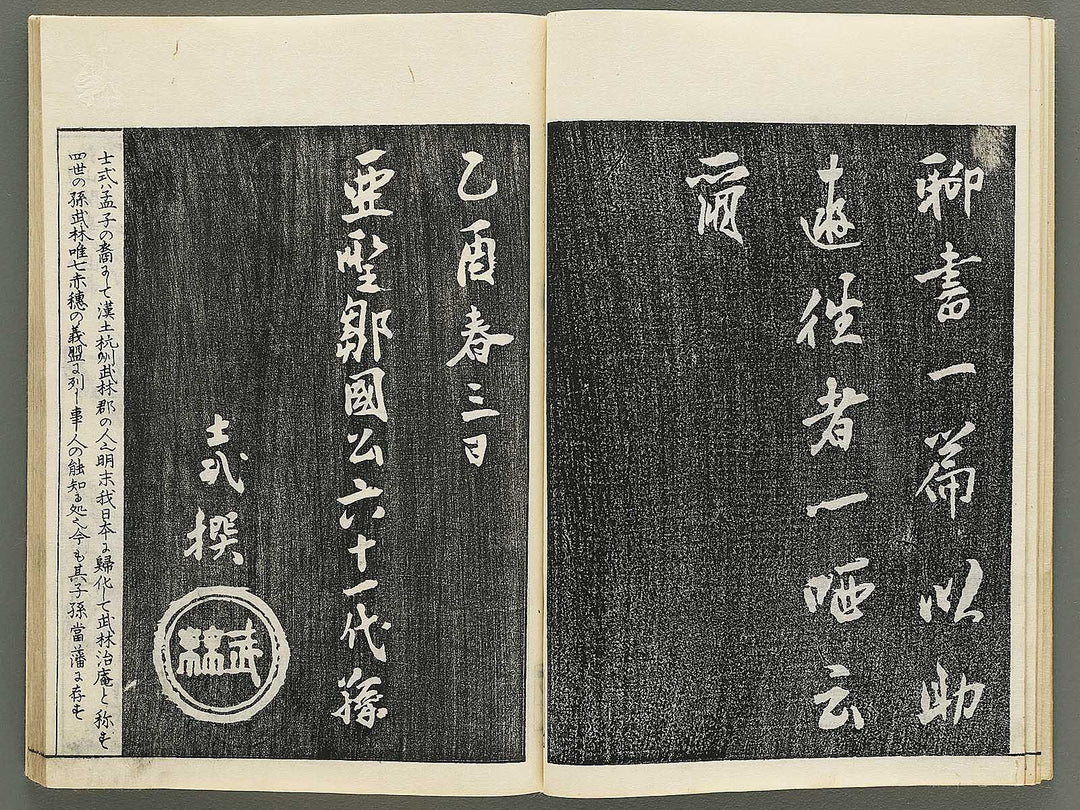 聊書一篇以助
遊徃者一哂云
爾
乙酉春三日
亞聖鄒國公六十一代孫
士式撰
武林
士式ハ孟子の裔にて漢土杭州武林郡の人也明末我日本に歸化して武林治庵と称す
四世の孫武林唯七赤穗の義盟に列し事ハ人の能知る処也今も其子孫當藩に存す